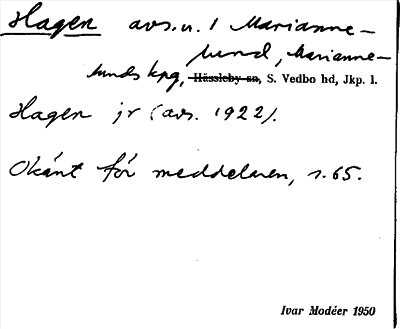 Hagen avs. u. 1 Marianne-
lund, Marianne-
lunds kpg, Hässleby sn, S. Vedbo hd, Jkp. l.
Hagen jr (avs. 1922).
Okänt för meddelaren, s. 65.
Ivar Modéer 1950